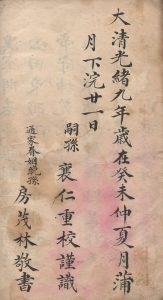 大清光緒九年歲在癸未仲夏月蒲
月下浣廿一日
嗣孫 襄仁重校謹識
通家眷姻晚孫
房茂林敬書